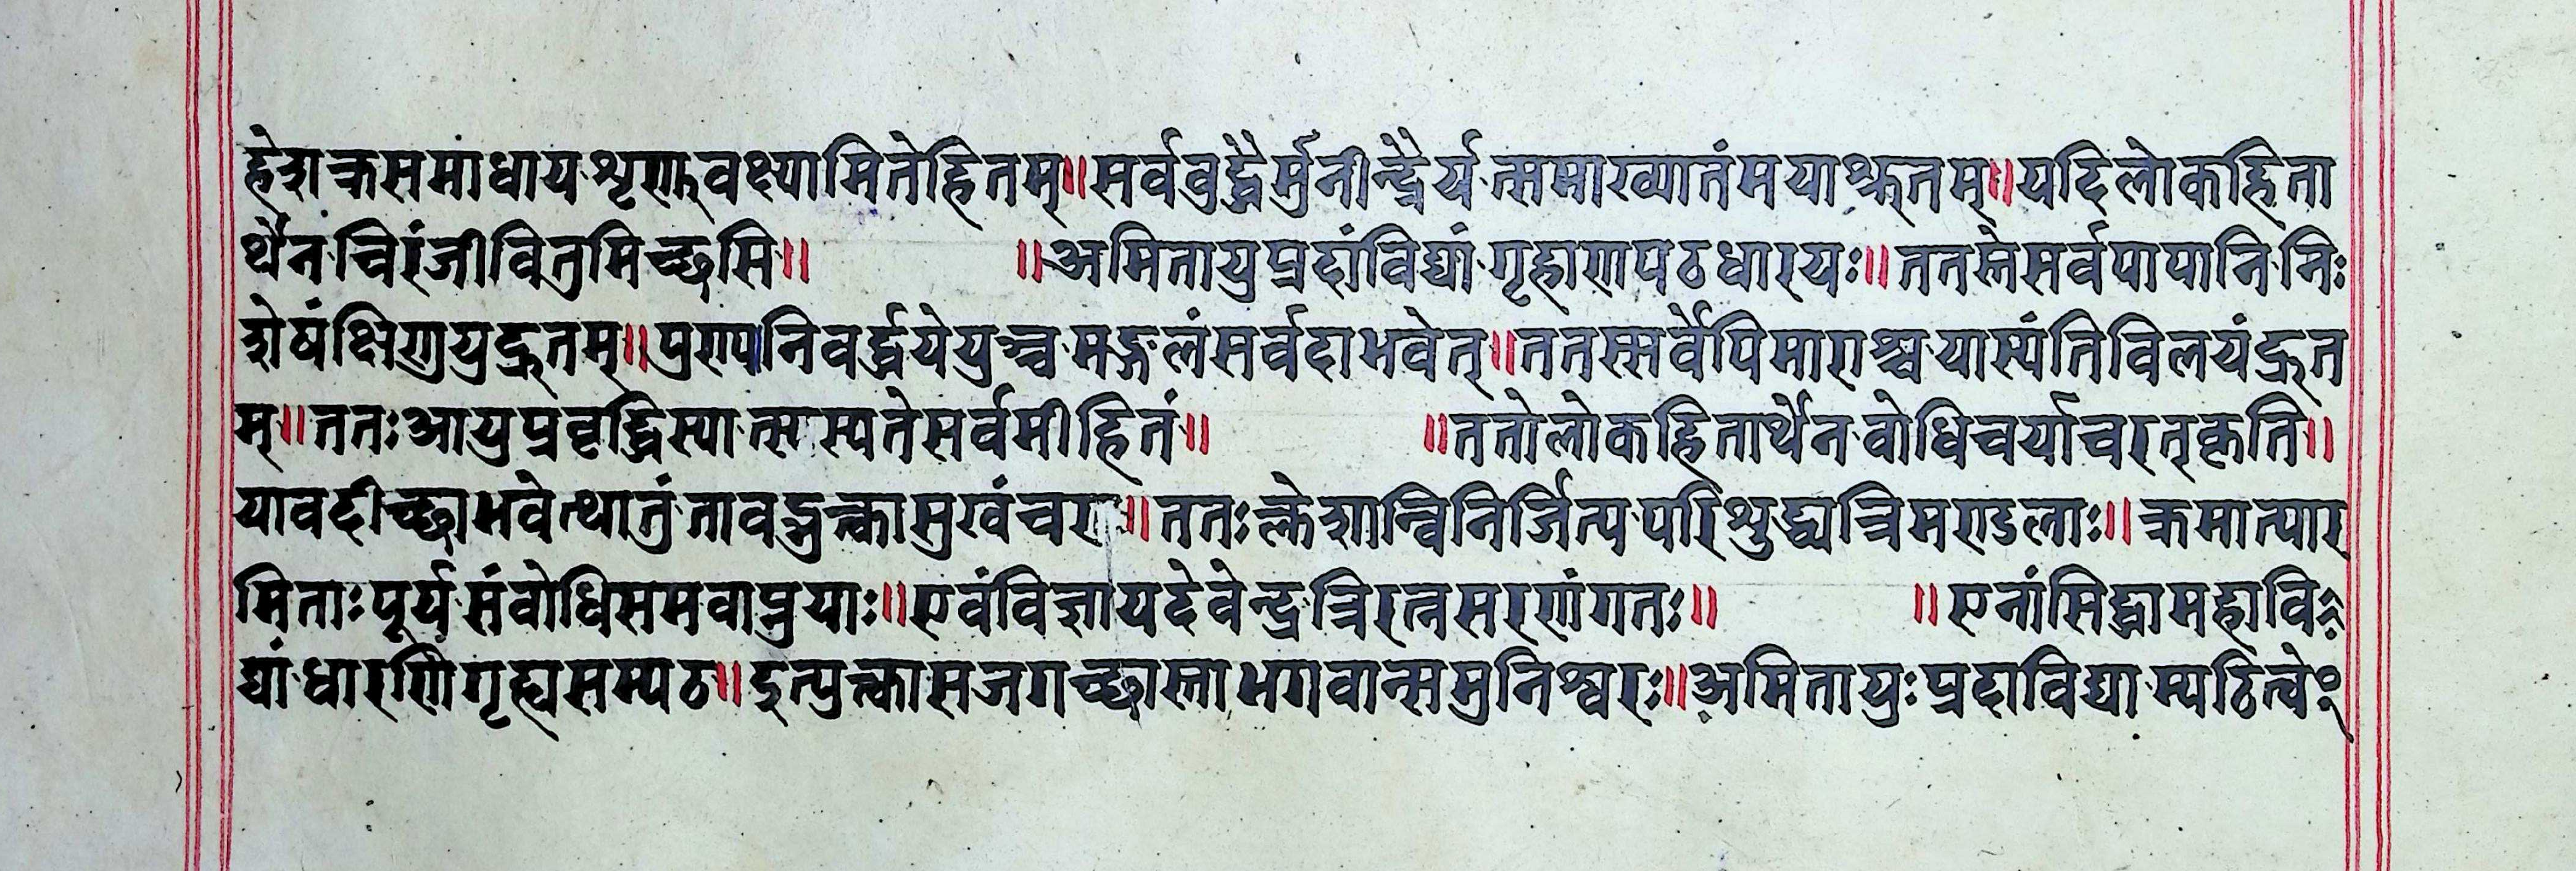 हेशक्रसमाधायशृणुवक्ष्यामितेहितम्॥सर्ववुद्धैर्मुनीन्द्रैर्यत्समाख्यातंमयाश्रुतम्॥यदिलोकहिता
र्थेनचिरंजीवितुमिच्छसि॥ ॥अमितायुप्रदांविद्यांगृहाणपठधारयः॥ततस्तेसर्वपापानिनिः
शेषंक्षिणुयुद्रुतम्॥पुण्यानिवर्द्धयेयुश्चमङ्गलंसर्वदाभवेत्॥ततस्सर्वेपिमाराश्चयास्यंतिविलयंद्रुत
म्॥ततःआयुप्रवृद्धिस्यात्सस्यतेसर्वमीहितं॥ ॥ततोलोकहितार्थेनवोधिचर्याचरत्कृति॥
यावदीच्छाभवेत्थातुंतावद्भुक्त्वासुखंचरा॥ततःक्लेशान्विनिर्जित्यपरिशुद्धात्रिमण्डलाः॥क्रमात्पार
मिताःपूर्यसंवोधिसमवाप्नुयाः॥एवंविज्ञायदेवेन्द्रत्रिरत्नसरणंगतः॥ ॥एनांसिद्धामहावि
द्यांधारणिंगृह्यसम्पठ॥इत्युक्त्वासजगच्छास्ताभगवान्समुनिश्वरः॥अमितायुःप्रदाविद्याम्पठित्वे